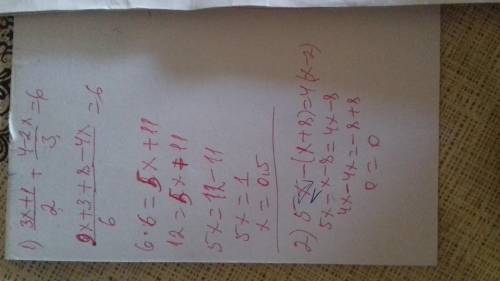 1) (3x+1)/2 + (4-2x)/3 = 6
(9x+3+8-4x)/6 = 6
6·6 = 5x+11
12 = 5x+11
5x = 12-11
5x = 1
x = 0,5
2) 5x-(x+8)=4(x-2)
5x-x-8=4x-8
4x-4x=-8+8
0=0